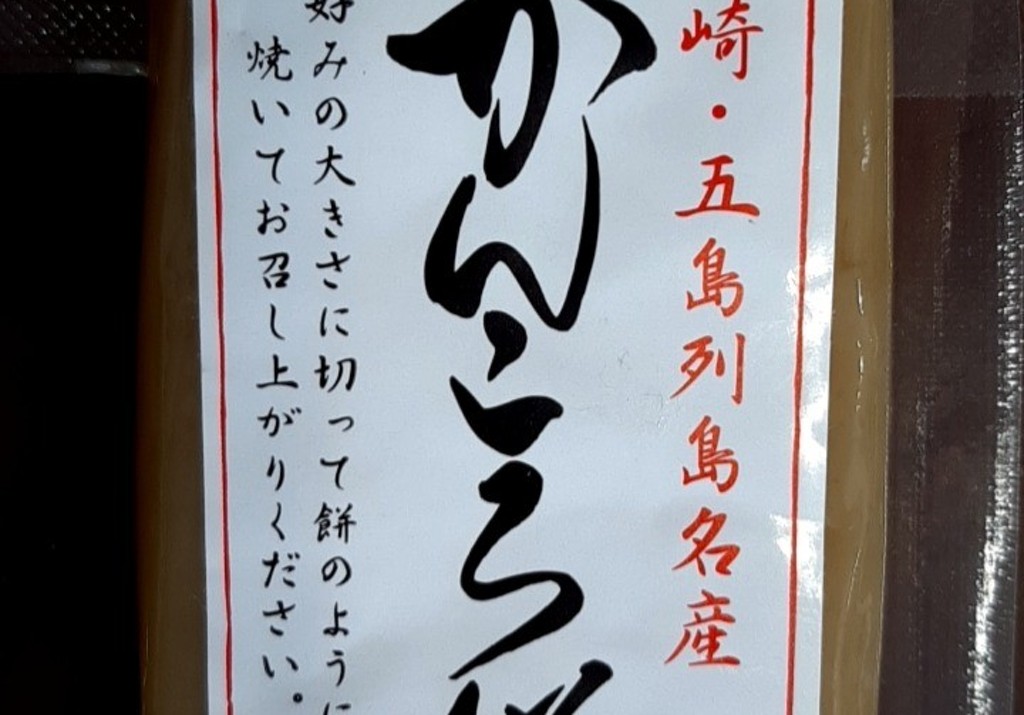 崎・五島列島名産
かんころ
好みの大きさに切って餅のように
焼いてお召し上がりください。